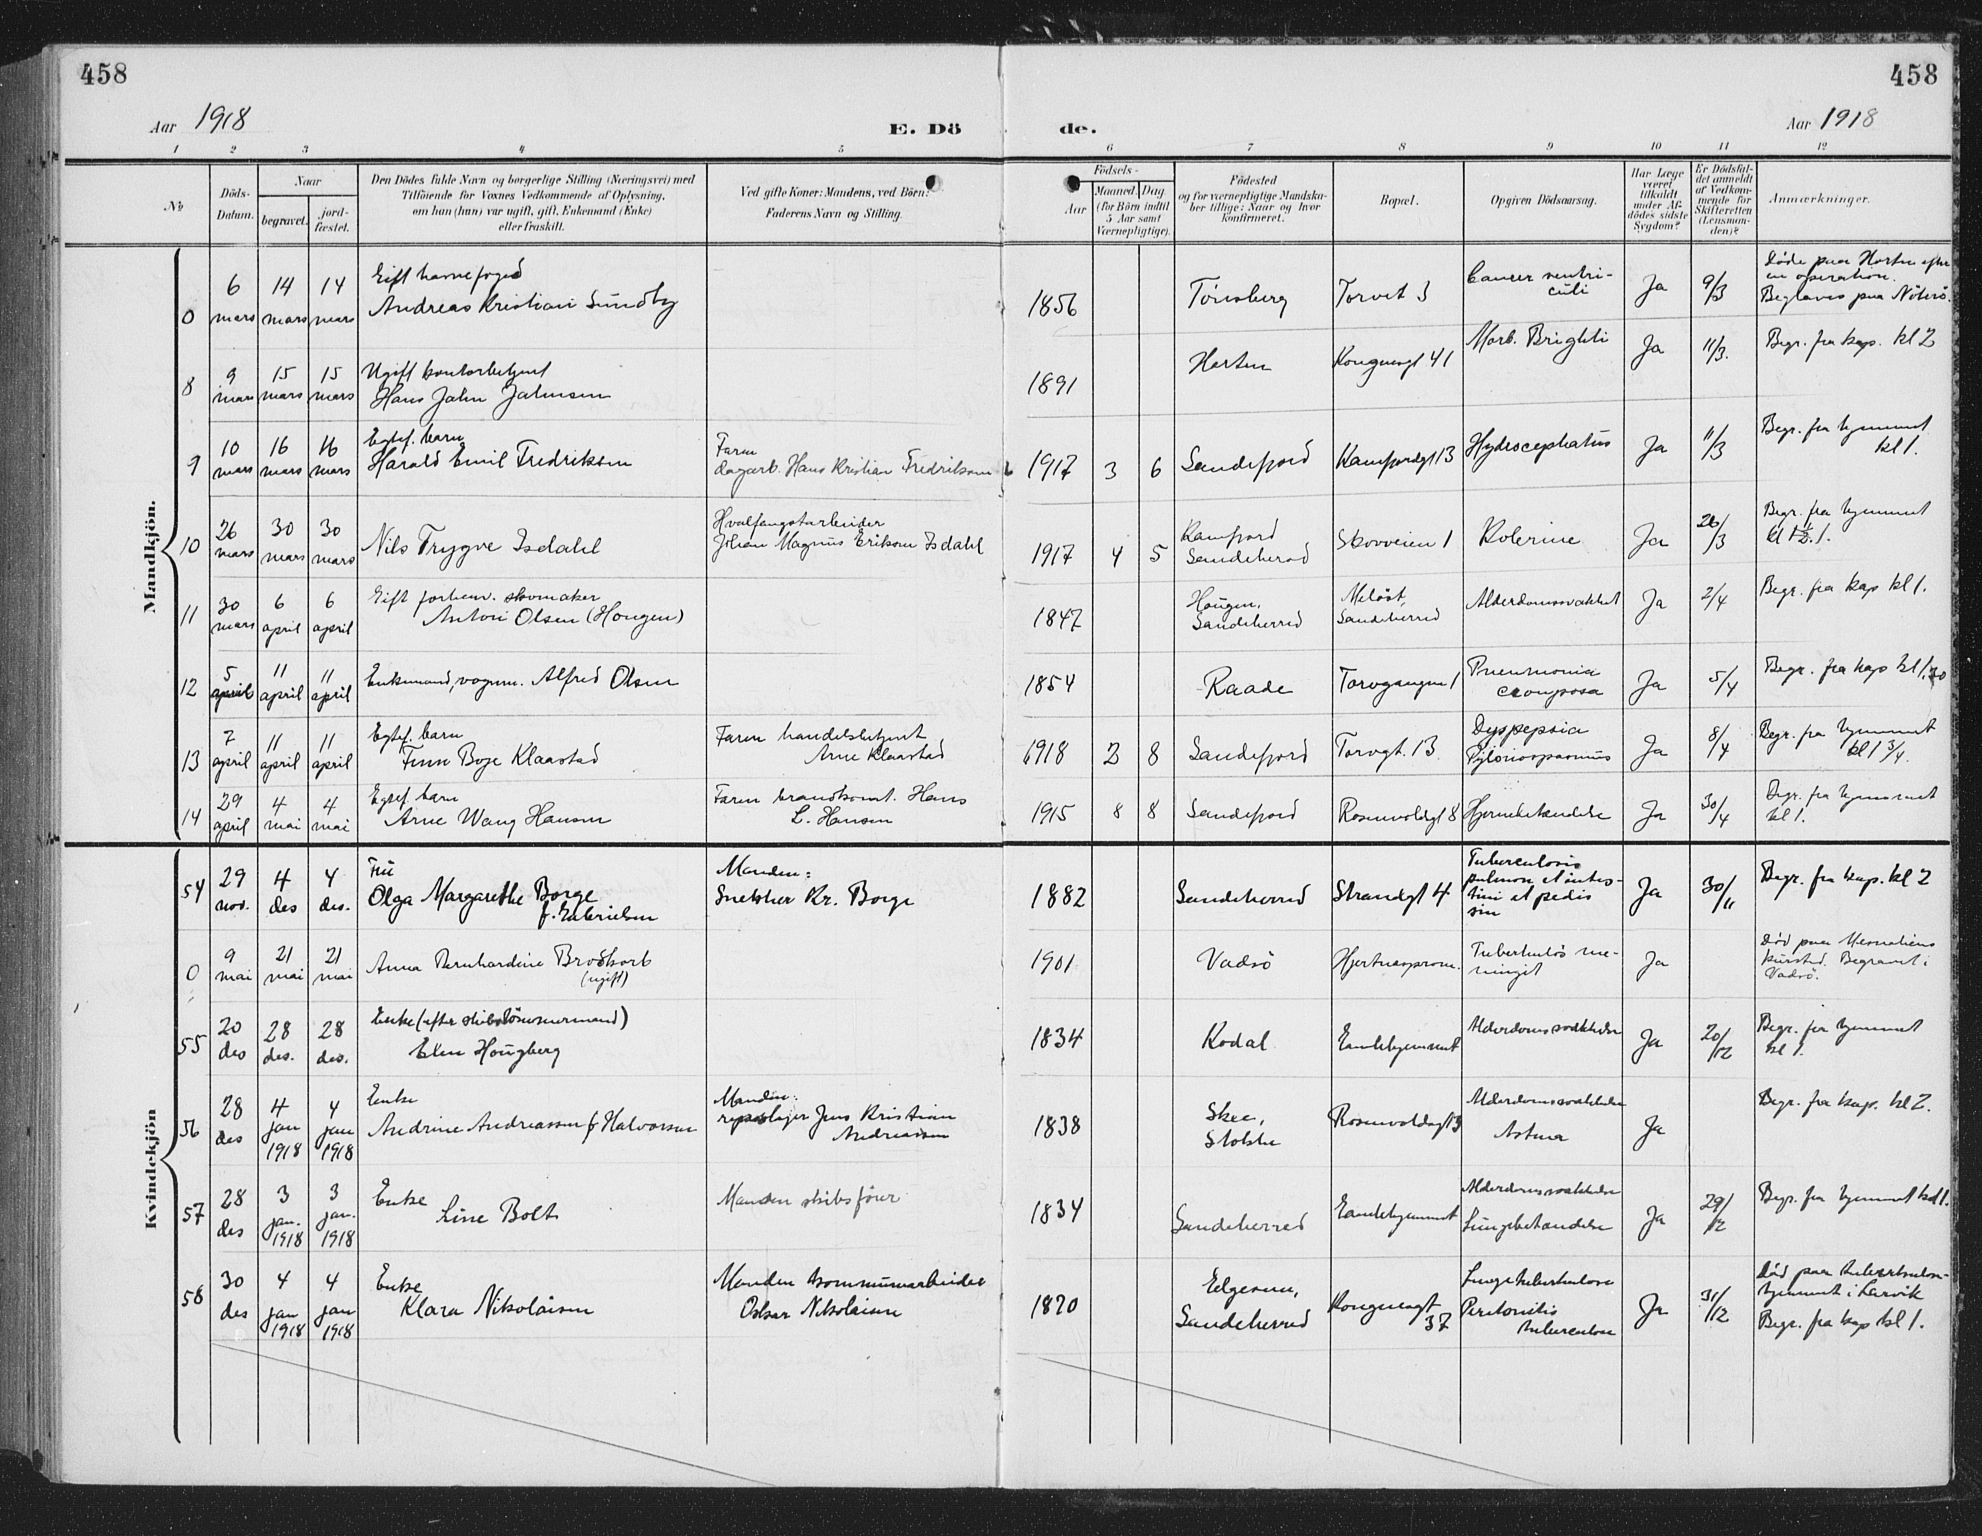 458
458
Aar 1918
E. Dö
de.
Aar 1918
1 2 3 4 5 6 7 8 9 10 11 12
No
Döds-
Datum.
Naar
begravet.
jord-
fæstet.
Den Dödes fulde Navn og borgerlige Stilling (Næringsvei) med
Tilföiende for Voxnes Vedkommende af Oplysning,
om han (hun) var ugift, gift, Enkemand (Enke)
eller fraskilt.
Ved gifte Koner: Mandens, ved Börn:
Faderens Navn og Stilling.
Födsels-
Aar
Maaned.
Dag
(for Börn indtil
5 Aar samt
Værnepligtige).
Födested
og for værnepligtige Mandska-
ber tillige: Naar og hvor
konfirmeret.
Bopæl.
Opgiven Dödsaarsag.
Har Læge
været
tilkaldt
under Af-
dödes sidste
Sygdom?
Er Dödsfal-
det anmeldt
af Vedkom-
mende for
Skifteretten
(Lensman-
den)?
Anmærkninger.
Mandkjön.
0 6 mars 14 mars 14 mars
Gift havnefoged
Andreas Kristian Sundby
1856 Tönsberg Torvet 3
Cancer ventri-
culi
Ja 9/3
Døde paa Horten efter
en operation.
Begraves paa Nöterö.
8 9 mars 15 mars 15 mars
Ugift kontorbetjent
Hans Jahn Jahnsen
1891 Horten Kongensgt 41 Morb. Brighti Ja 11/3.
Begr. fra kap. kl 2
9 10 mars 16 mars 16 mars
Egtef. barn
Harald Emil Fredriksen
Faren
dagarb. Hans Kristian Fredriksen
1917 3 6 Sandefjord Kamfjordgt 13 Hydrocephalus Ja 11/3
Begr. fra hjemmet
kl 1.
10 26 mars 30 mars 30 mars
Nils Trygve Isdahl
Hvalfangstarbeider
Johan Magnus Eriksen Isdahl
1917 4 5
Kamfjord
Sandeherred
Skovveien 1 Kolerine Ja 26/3
Begr. fra hjemmet
kl 1/2 1.
11 30 mars 6 april 6 april
Gift forhenv. skomaker
Anton Olsen (Hougen)
1847
Hougen,
Sandeherred
Melöst,
Sandeherred
Alderdomssvakhet Ja 2/4
Begr. fra kap kl 1.
12 5 april 11 april 11 april
Enkemand, vognm. Alfred Olsen
1854 Raade Torvgangen 1
Pneumonia
crouposa
Ja 5/4
Begr. fra kap kl 1.30
13 7 april 11 april 11 april
Egtef. barn
Finn Boye Klaastad
Faren handelsbetjent
Arne Klaastad
1918 2 8 Sandefjord Torvgt. 13
Dyspepsia
Pylorospasmus
Ja 8/4
Begr. fra hjemmet
kl 1 3/4.
14 29 april 4 mai 4 mai
Egtef. barn
Arne Wang Hansen
Faren brandkonst. Hans
L. Hansen
1915 8 8 Sandefjord Rosenvoldgt 8 Hjernebetændelse Ja 30/4
Begr. fra hjemmet
kl 1.
Kvindekjön
54 29 nov. 4 des 4 des.
Fru
Olga Margarethe Borge
f. Gabrielsen
Manden:
Snekker Kr. Borge
1882 Sandeherred Strandgt 4
Tuberculosis
pulmon et intes-
tini et pedis
sin
Ja 30/11
Begr. fra kap. kl 2
0 9 mai 21 mai 21 mai
Anna Bernhardine Brodkorb
(ugift)
1901 Vadsö Hjertnesprom.
Tuberkulös me-
ningit
Ja
Död paa
kursted. Begravet i
Vadsö.
55 20 des 28 des. 28 des.
Enke (efter skibstömmermand)
Elen Hougberg
1834 Kodal Gamlehjemmet Alderdomssvakhelse Ja 20/12
Begr. fra hjemmet
kl 1.
56 28 des 4 jan 1918 4 jan 1918
Enke
Andrine Andreassen f. Halvorsen
Manden:
repslager Jens Kristian
Andreassen
1838
Skee,
Stokke
Rosenvoldsgt 3
Alderdomssvakhelse
Astma
Ja
Begr. fra kap. kl 2.
57 28 des 3 jan. 1918 3 jan. 1918
Enke
Line Bolt
Manden skibsförer
1834 Sandeherred Gamlehjemmet
Alderdomssvakhelse
Lungebetændelse
Ja 29/12
Begr. fra hjemmet kl 1.
58 30 des 4 jan 1918 4 jan 1918
Enke
Klara Nikolaisen
Manden kommunearbeider
Oskar Nikolaisen
1870
Sandeherred
Kongensgt
37
Lungetuberkulose
Peritonitis
tuberculose
Ja 31/12
Död paa tuberkulose-
hjemmet i Larvik
Begr. fra kap kl 1.